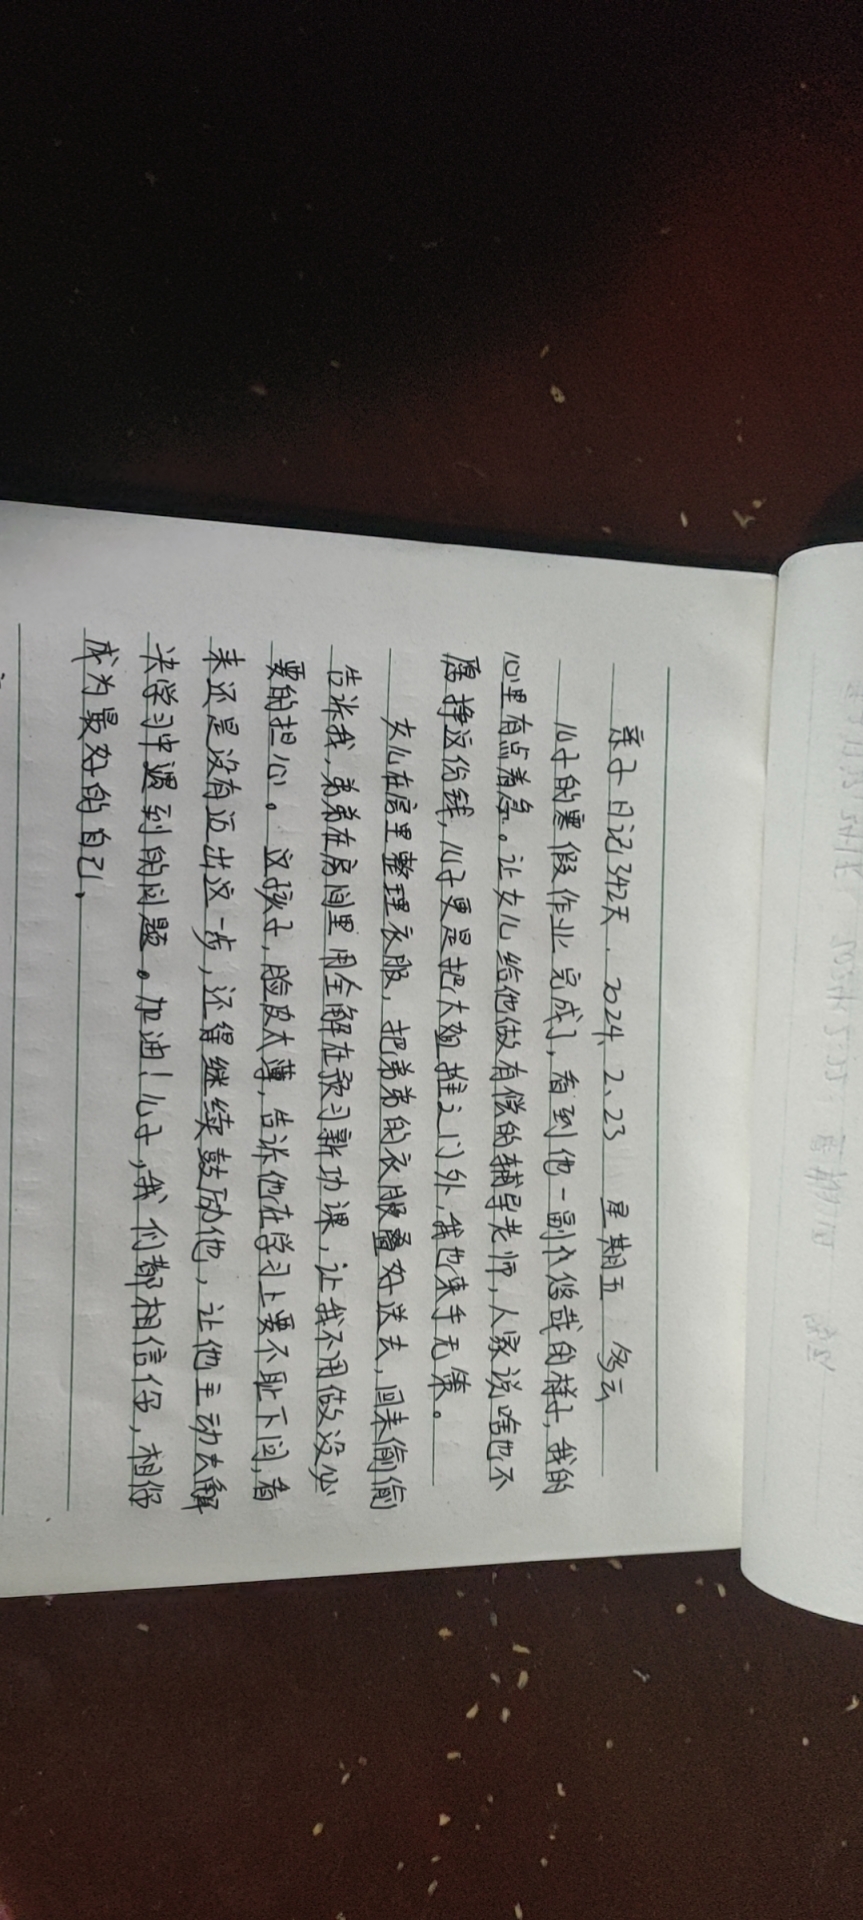 亲子日记342天、2024、2、23 星期五 多云
儿子的寒假作业完成了，看到他一副优悠哉的样子，我的
心里有点着急。让女儿给他做有偿的辅导老师，人家说啥也不
愿挣这份钱，儿子更是把大姐推之门外，我也束手无策。
女儿在房里整理衣服，把弟弟的衣服叠好送去，回来偷偷
告诉我，弟弟在房间里用全解在预习新功课，让我不用做没必
要的担心。这孩子，脸皮太薄，告诉他在学习上要不耻下问，看
来还是没有迈出这一步，还得继续鼓励他，让他主动去解
决学习中遇到的问题。加油！儿子，我们都相信你，相你
成为最好的自己、